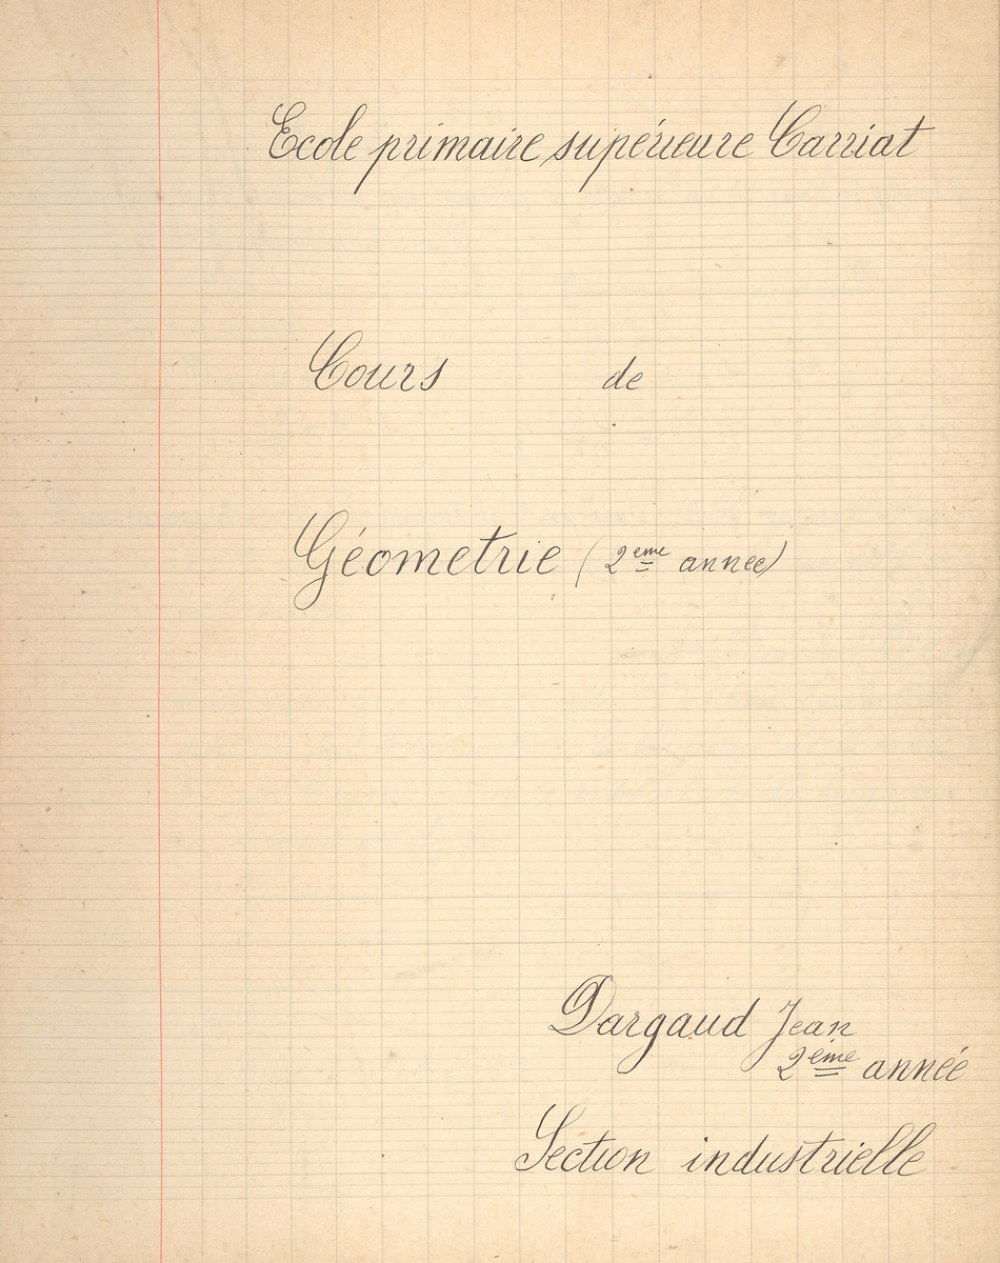 Ecole primaire supérieure Carriat
Cours de
Géometrie (2eme année)
Dargaud Jean
2ème année
Section industrielle